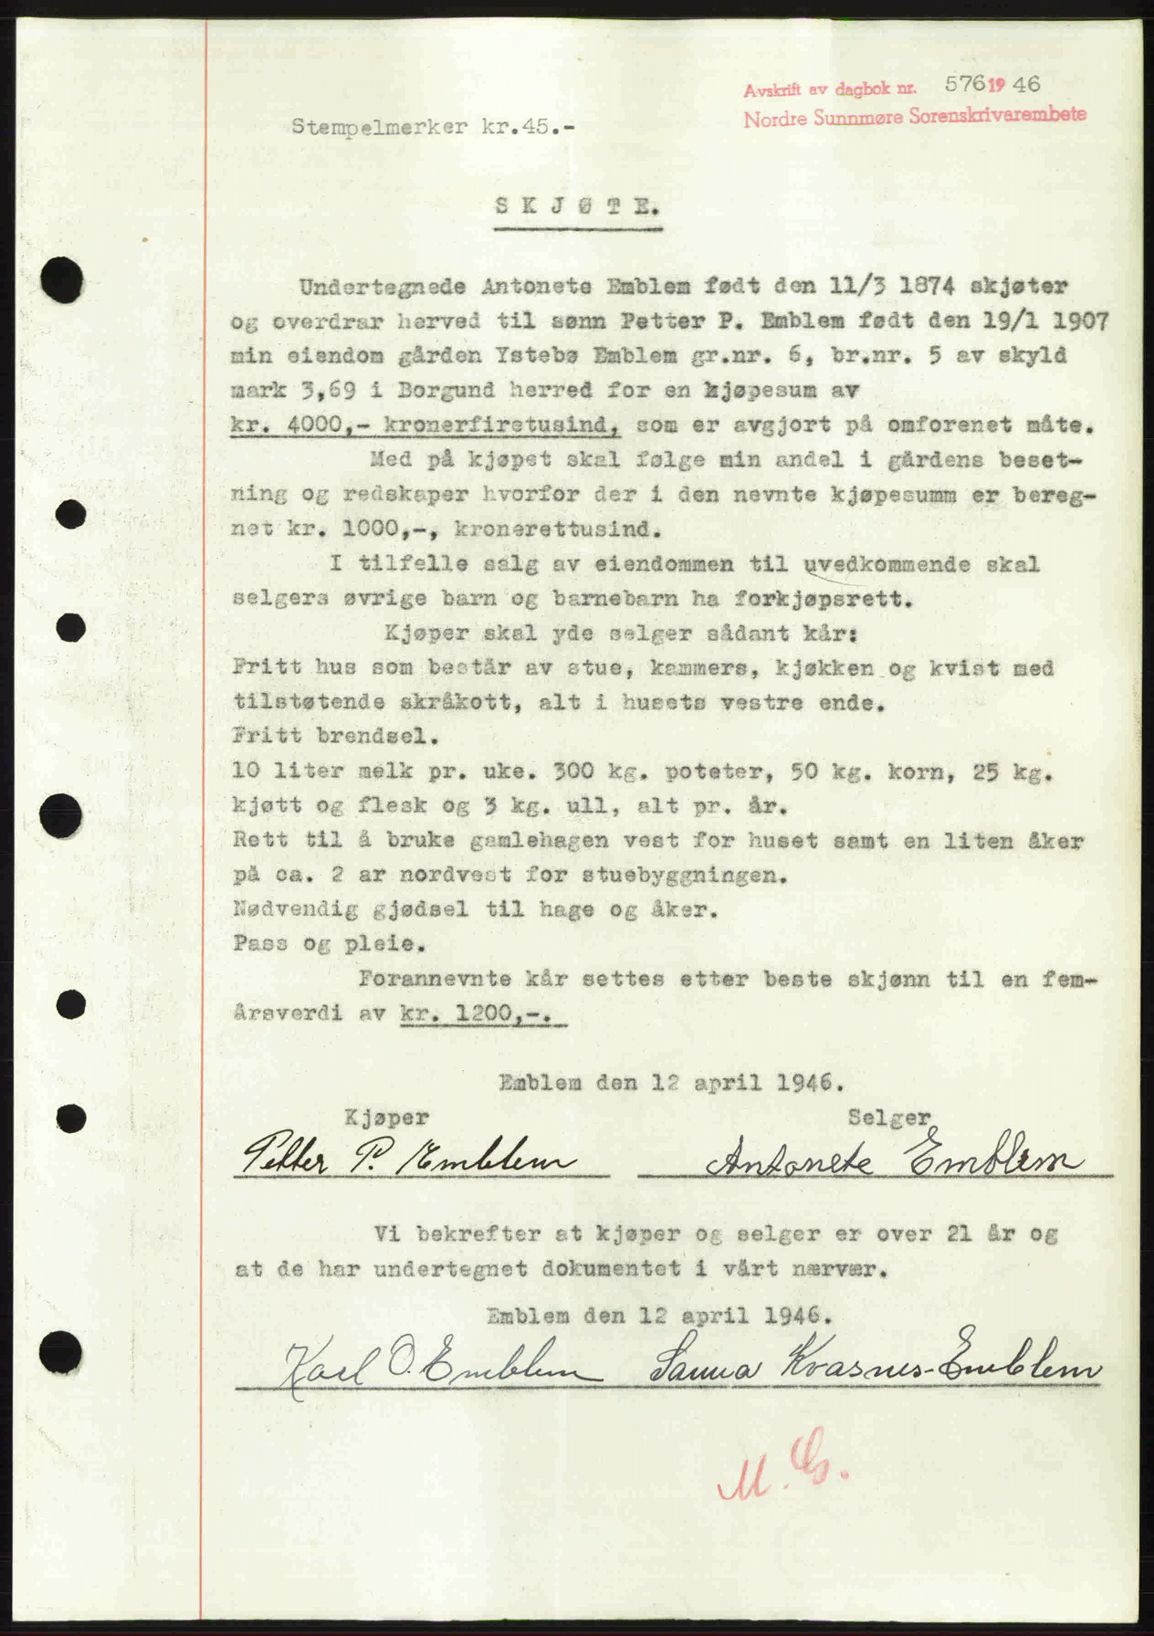 Avskrift av dagbok nr. 576 19 46
Nordre Sunnmøre Sorenskrivarembete
Stempelmerker kr.45.-
S K J Ø T E.
Undertegnede Antonete Emblem født den 11/3 1874 skjøter
og overdrar herved til sønn Petter P. Emblem født den 19/1 1907
min eiendom gården Ystebø Emblem gr.nr. 6, br.nr. 5 av skyld
mark 3,69 i Borgund herred for en kjøpesum av
kr. 4000,- kronerfiretusind, som er avgjort på omforenet måte.
Med på kjøpet skal følge min andel i gårdens beset-
ning og redskaper hvorfor der i den nevnte kjøpesumm er bereg-
net kr. 1000,-, kronerettusind.
I tilfelle salg av eiendommen til uvedkommende skal
selgers øvrige barn og barnebarn ha forkjøpsrett.
Kjøper skal yde selger sådant kår:
Fritt hus som består av stue, kammers, kjøkken og kvist med
tilstøtende skråkott, alt i husets vestre ende.
Fritt brendsel.
10 liter melk pr. uke. 300 kg. poteter, 50 kg. korn, 25 kg.
kjøtt og flesk og 3 kg. ull, alt pr. år.
Rett til å bruke gamlehagen vest for huset samt en liten åker
på ca. 2 ar nordvest for stuebyggningen.
Nødvendig gjødsel til hage og åker.
Pass og pleie.
Forannevnte kår settes etter beste skjønn til en fem-
årsverdi av kr. 1200,-.
Emblem den 12 april 1946.
Kjøper Selger
Petter P. Emblem Antonete Emblem
Vi bekrefter at kjøper og selger er over 21 år og
at de har undertegnet dokumentet i vårt nærvær.
Emblem den 12 april 1946.
Karl O. Emblem Sanna Kvasnes-Emblem
M. G.